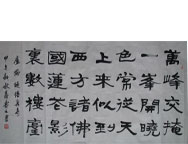 萬峰交掩
一峯開曉
色常從天
上來似到
西方諸佛
國蓮花影
裏數樓臺